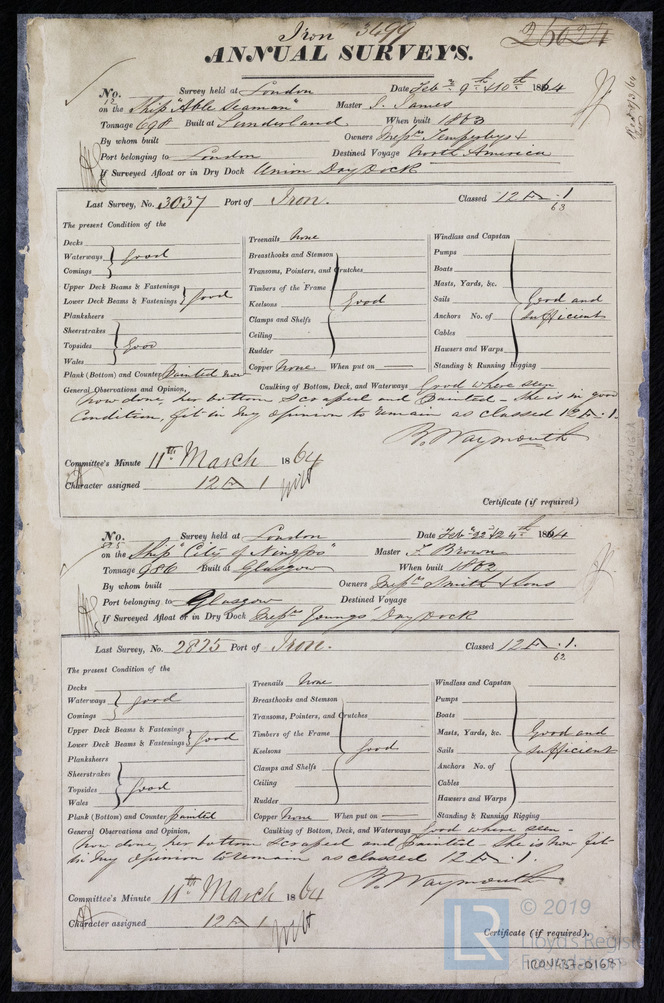 Iron 3499
25024
ANNUAL SURVEYS.
No. 12 Survey held at London Date Feby 9th & 10th 1864
on the Ship "Able Seaman" Master S. James
Tonnage 698 Built at Sunderland When built 1863
By whom built Owners Messrs Temperleys &
Port belonging to London Destined Voyage North America
If Surveyed Afloat or in Dry Dock Union Dry Dock
Last Survey, No. 3037 Port of Iron. Classed 12 A.1
63
The present Condition of the
Decks
Waterways good
Comings
Upper Deck Beams & Fastenings
Lower Deck Beams & Fastenings good
Planksheers
Sheerstrakes
Topsides good
Wales
Plank (Bottom) and Counter Painted now
Treenails None
Breasthooks and Stemson
Transoms, Pointers, and Crutches
Timbers of the Frame
Keelsons good
Clamps and Shelfs
Ceiling
Rudder
Copper None When put on
Windlass and Capstan
Pumps
Boats
Masts, Yards, &c.
Sails Good and
Anchors No. of Sufficient
Cables
Hawsers and Warps
Standing & Running Rigging
General Observations and Opinion, Caulking of Bottom, Deck, and Waterways Good where seen
Now done, her bottom scraped and Painted - She is in good
Condition fit in my opinion to remain as classed 12 A.1.
B. Waymouth
Committee's Minute 11th March 1864
Character assigned 12 A 1
Certificate (if required)
No. Survey held at London Date Feby 22 & 24th 1864
on the Ship "City of Ningpo" Master F. Brown
Tonnage 986 Built at Glasgow When built 1862
By whom built Owners Messrs Smith & Sons
Port belonging to Glasgow Destined Voyage
If Surveyed Afloat or in Dry Dock Messrs Youngs' Dry Dock
Last Survey, No. 2825 Port of Iron. Classed 12 A.1.
62
The present Condition of the
Decks
Waterways good
Comings
Upper Deck Beams & Fastenings
Lower Deck Beams & Fastenings good
Planksheers
Sheerstrakes
Topsides good
Wales
Plank (Bottom) and Counter painted
Treenails None
Breasthooks and Stemson
Transoms, Pointers, and Crutches
Timbers of the Frame
Keelsons good
Clamps and Shelfs
Ceiling
Rudder
Copper None When put on
Windlass and Capstan
Pumps
Boats
Masts, Yards, &c. Good and
Sails Sufficient
Anchors No. of
Cables
Hawsers and Warps
Standing & Running Rigging
General Observations and Opinion, Caulking of Bottom, Deck, and Waterways Good where seen -
Now done, her bottom scraped and painted - She is now fit
in my opinion to remain as classed 12 A.1.
B. Waymouth
Committee's Minute 11th March 1864
Character assigned 12 A 1
Certificate (if required).
LR © 2019
Lloyd's Register
Foundation
IRON437-0168